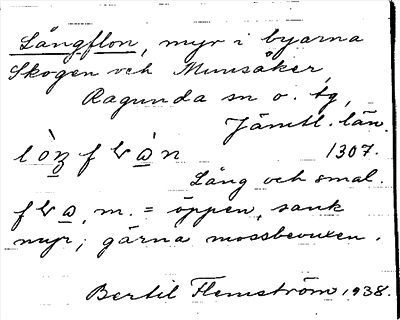 Långflon, myr i byarna
Skogen och Munsåker,
Ragunda sn o. tg,
Jämtl. län.
1307.
Lång och smal.
m. = öppen, sank
myr; gärna mossbevuxen.
Bertil Flemström 1938.